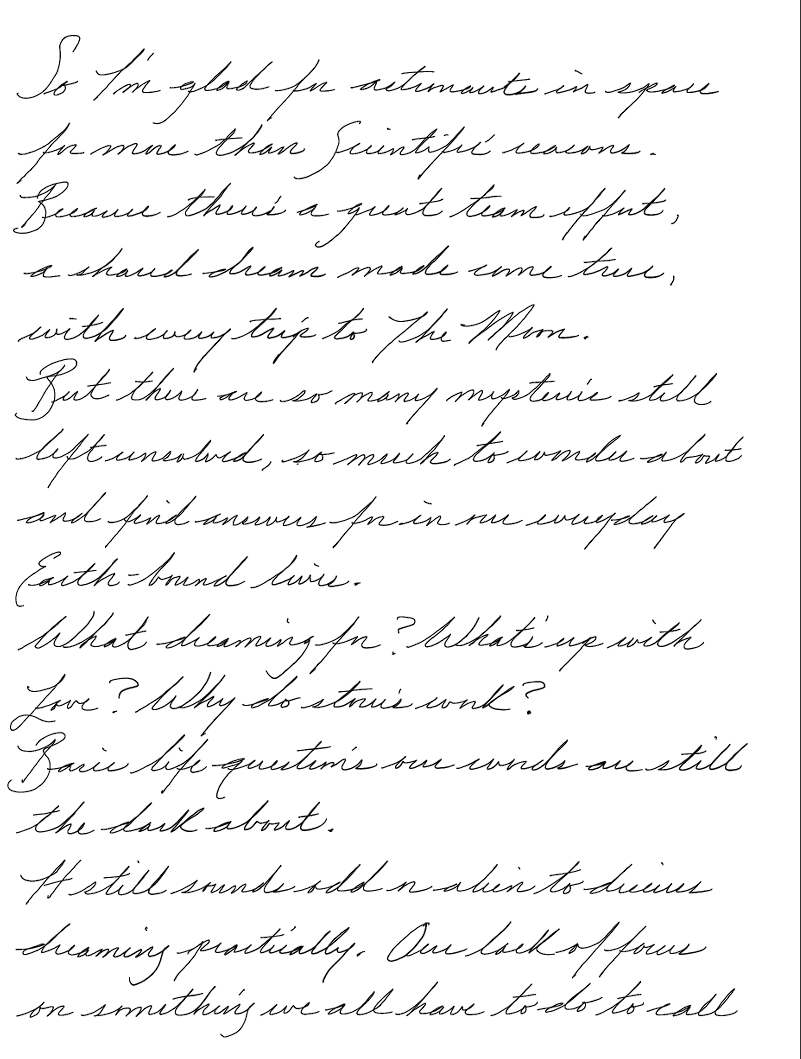 So I'm glad for astronauts in space
for more than Scientific reasons.
Because there's a great team effort,
a shared dream made come true,
with every trip to The Moon.
But there are so many mysteries still
left unsolved, so much to wonder about
and find answers for in our everyday
Earth-bound lives.
What dreaming for? What's up with
Love? Why do stories work?
Basic life questions our words are still
the dark about.
It still sounds odd or alien to discuss
dreaming practically. Our lack of focus
on something we all have to do to call